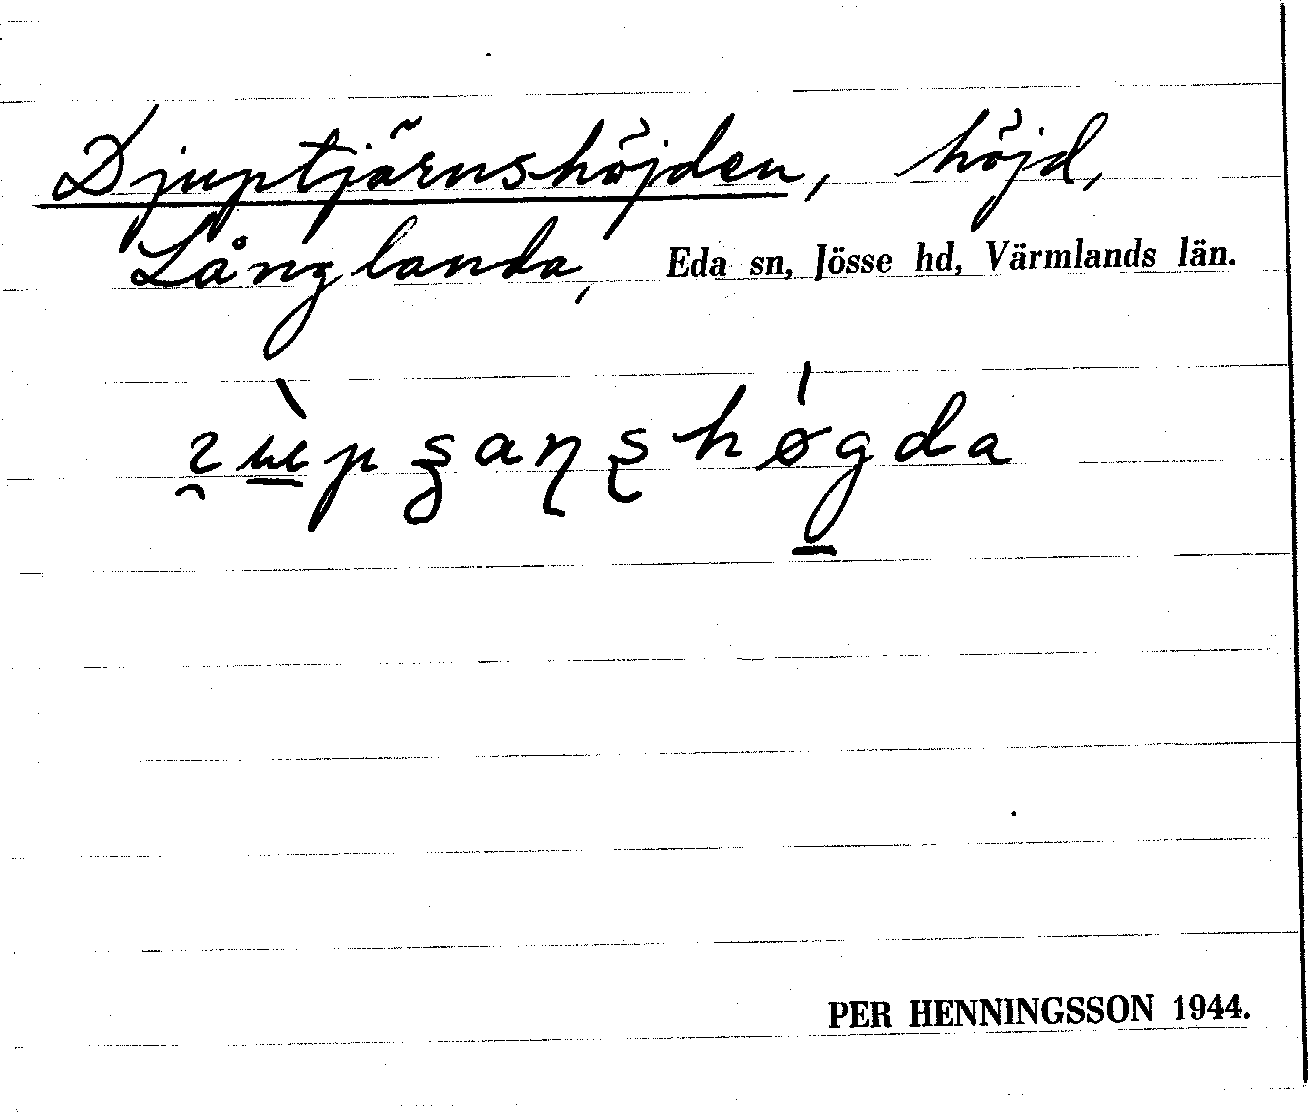 Djuptjärnshöjden, höjd,
Långlanda, Eda sn, Jösse hd, Värmlands län.
PER HENNINGSSON 1944.